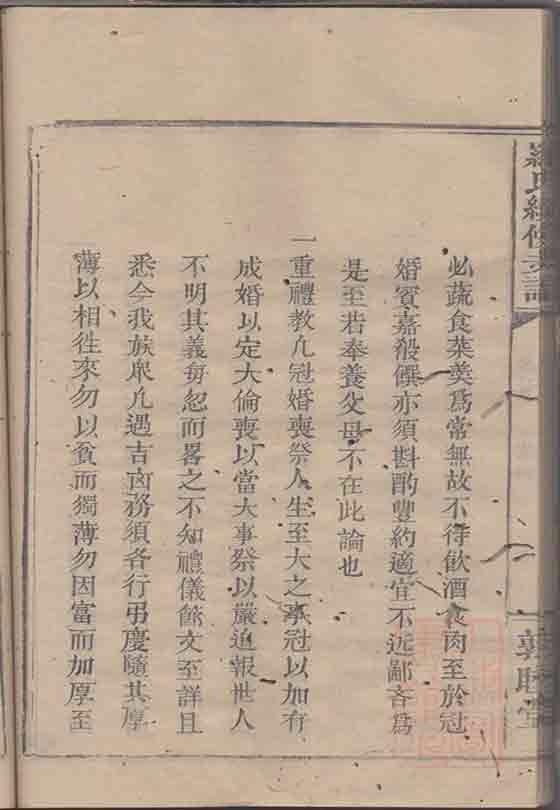 羅氏續修支譜
敦睦堂
必蔬食菜羹爲常無故不待飲酒食肉至於冠
婚賓嘉殽饌亦須斟酌豐約適宜不近鄙吝爲
是至若奉養父母不在此論也
一重禮教凡冠婚喪祭人生至大之事冠以加有
成婚以定大倫喪以當大事祭以嚴追報世人
不明其義每忽而畧之不知禮儀節文至詳且
悉今我族衆凡遇吉凶務須各行弔慶隨其厚
薄以相徃來勿以貧而獨薄勿因富而加厚至